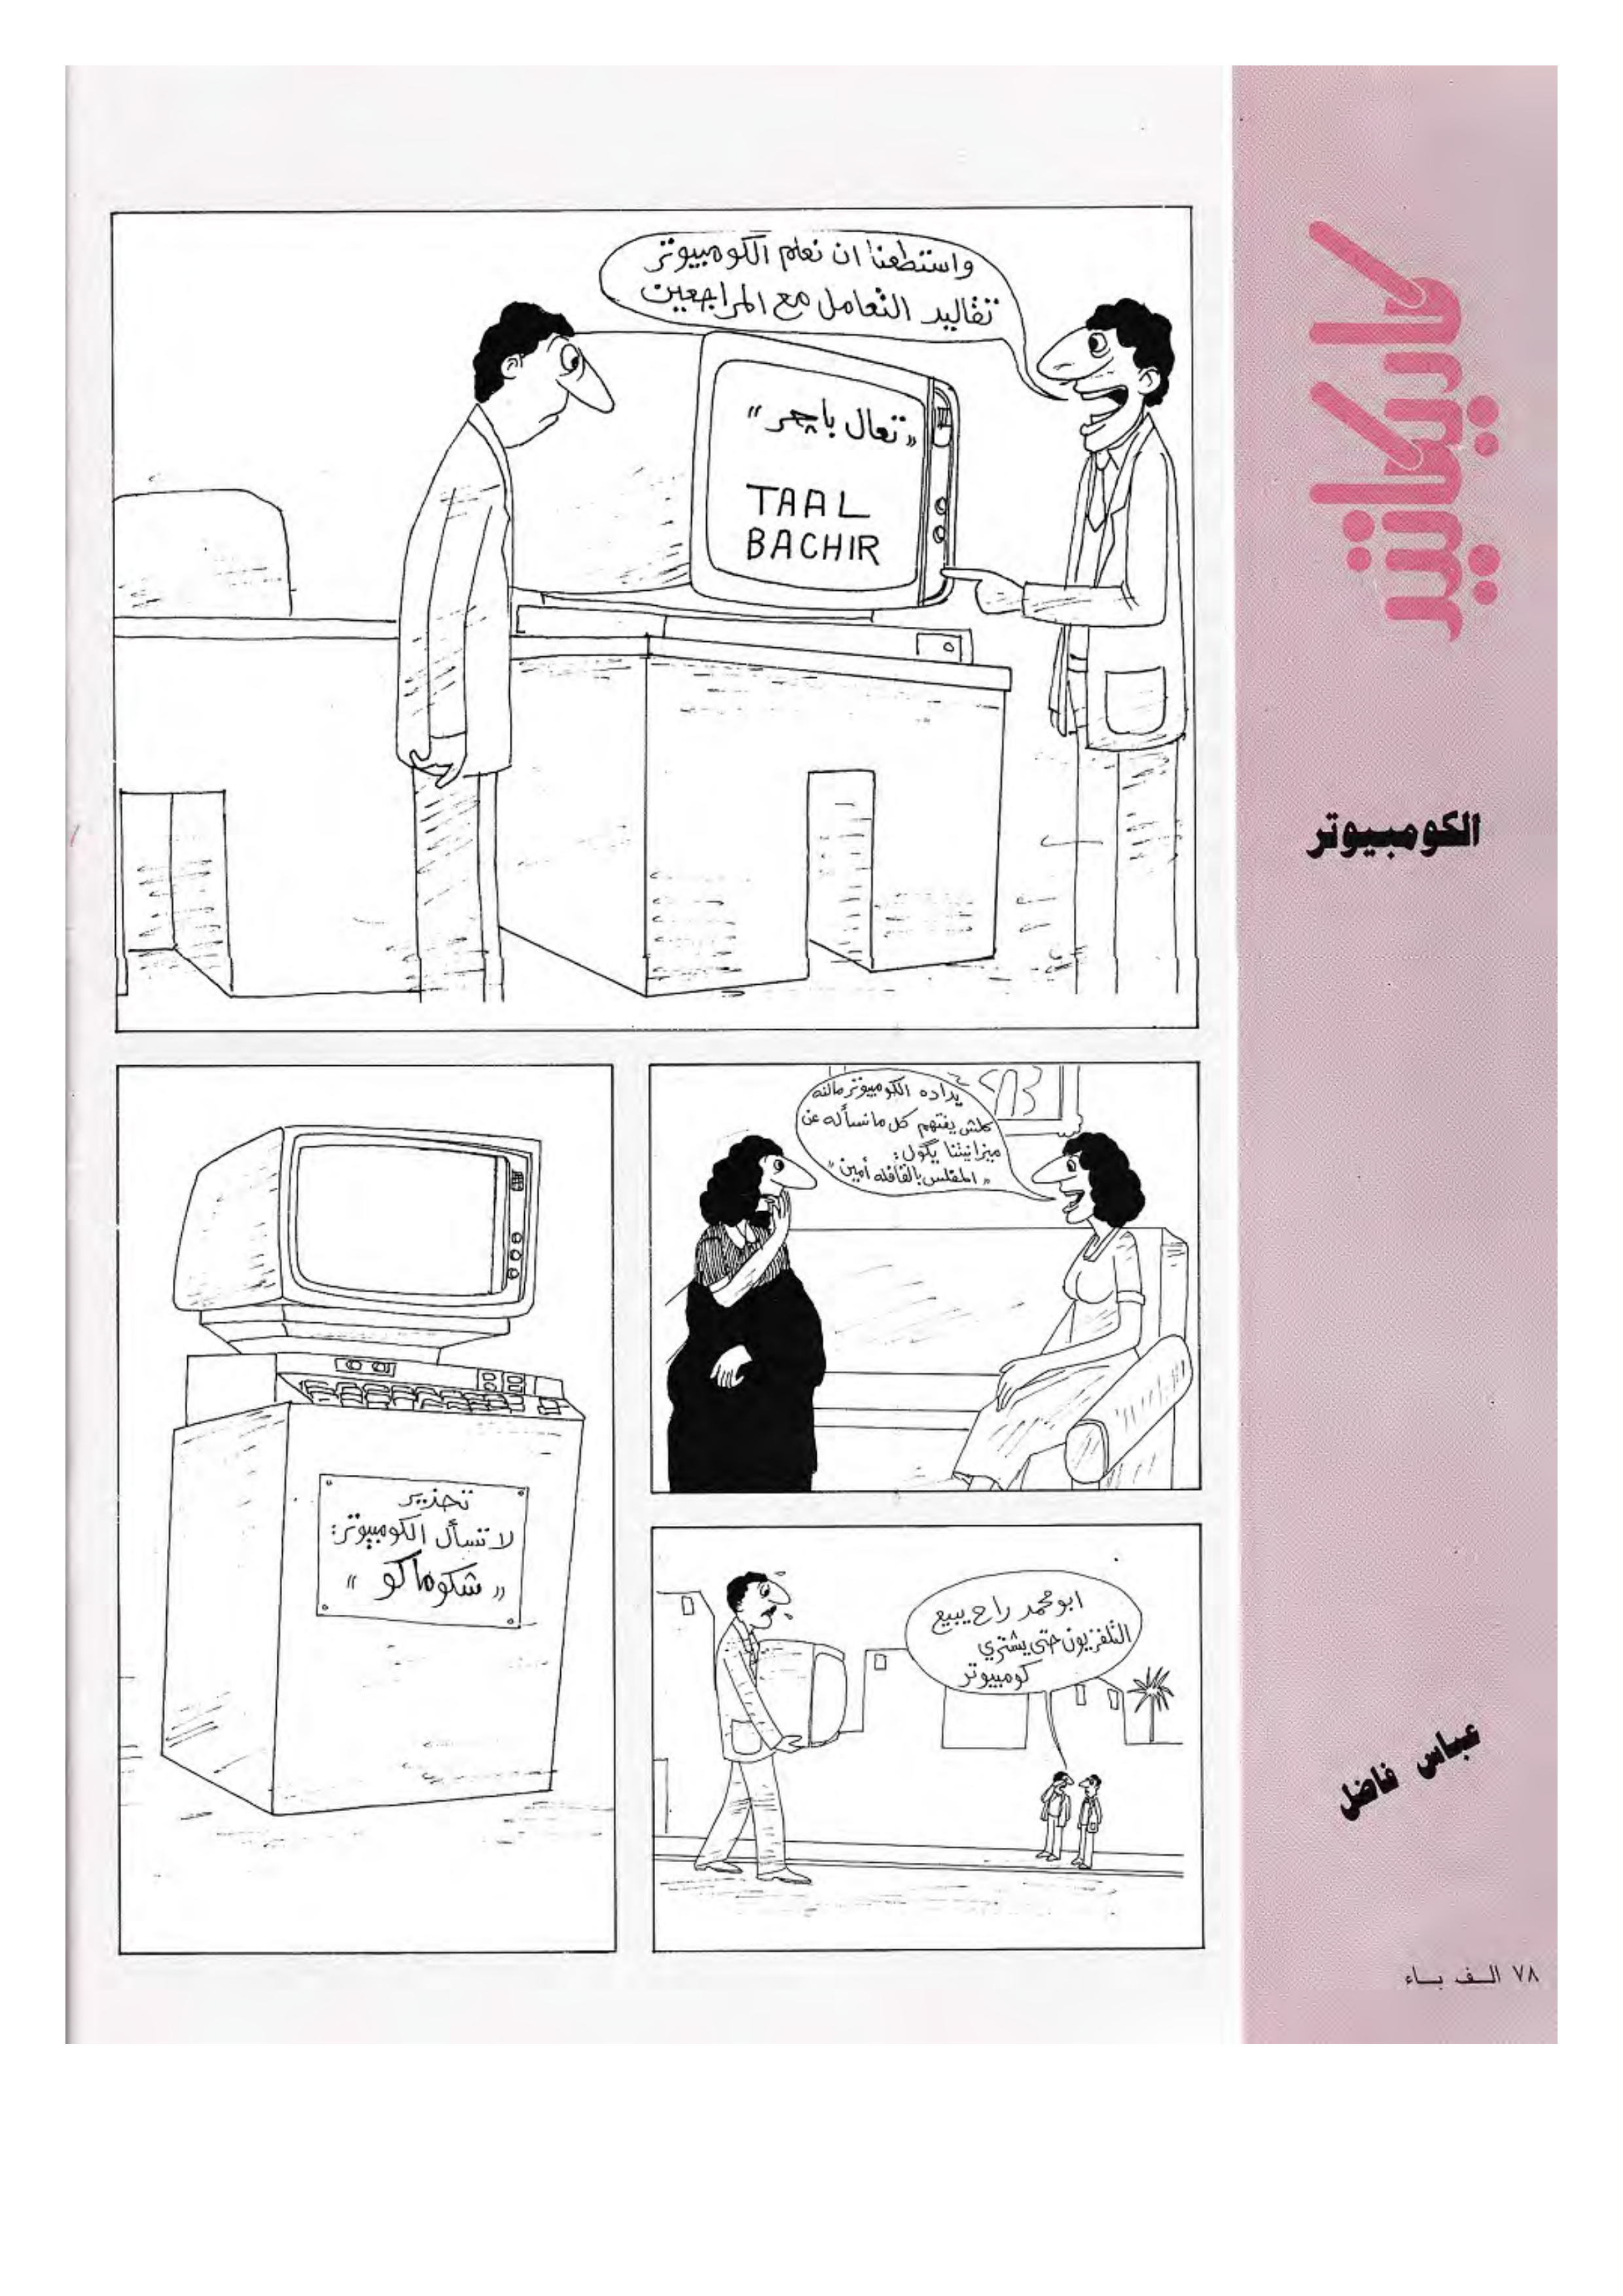 كاريكاتير
الكومبيوتر
عباس فاضل
واستطعنا ان نعلم الكومبيوتر
تقاليد التعامل مع المراجعين
«تعال باچر»
TAAL
BACHIR
يداده الكومبيوتر مالنه
كلش يفتهم كل ما نسأله عن
ميزانيتنا يگول:
«المفلس بالقافله أمين»
تحذير
لا تسأل الكومبيوتر:
«شكو ماكو»
ابو محمد راح يبيع
التلفزيون حتى يشتري
كومبيوتر
٧٨ الف باء